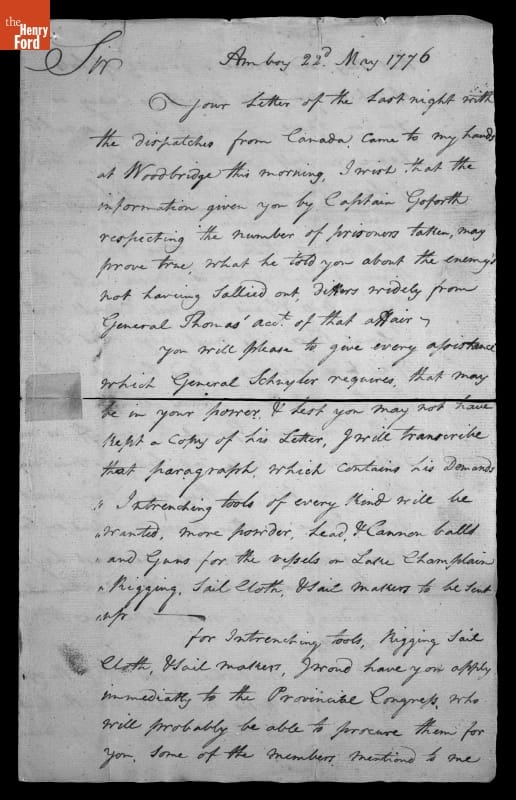 the
Henry
Ford
Sir
Amboy 22d. May 1776
Your Letter of the Last night with
the dispatches from Canada, came to my hands
at Woodbridge this morning, I wish that the
information given you by Captain Goforth
respecting the number of prisoners taken, may
prove true, what he told you about the enemy's
not having Sallied out, differs widely from
General Thomas' acct. of that affair ~
You will please to give every assistance
which General Schuyler requires, that may
be in your power, & lest you may not have
kept a Copy of his Letter, I will transcribe
that paragraph, which contains his Demands
" Intrenching tools of every kind will be
" wanted, more powder, lead, & Cannon balls
" and Guns for the vessels on Lake Champlain
" Rigging, Sail Cloth, & Sail makers to be sent
" up. —
for Intrenching tools, Rigging Sail
Cloth, & Sail makers, I woud have you apply
immediatly to the Provincial Congress, who
will probably be able to procure them for
you, some of the members, mentiond to me